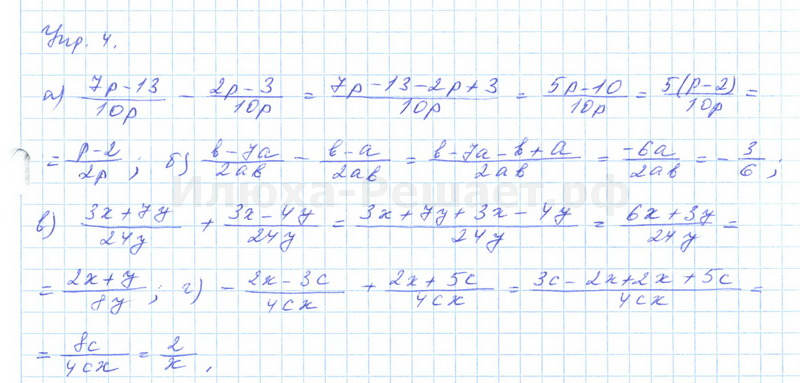 Упр. 4.
а) (7p-13)/(10p) - (2p-3)/(10p) = (7p-13-2p+3)/(10p) = (5p-10)/(10p) = 5(p-2)/(10p) =
= (p-2)/(2p); б) (b-7a)/(2ab) - (b-a)/(2ab) = (b-7a-b+a)/(2ab) = (-6a)/(2ab) = -3/6;
Илюха-Решает.рф
в) (3x+7y)/(24y) + (3x-4y)/(24y) = (3x+7y+3x-4y)/(24y) = (6x+3y)/(24y) =
= (2x+y)/(8y); г) -(2x-3c)/(4cx) + (2x+5c)/(4cx) = (3c-2x+2x+5c)/(4cx) =
= (8c)/(4cx) = 2/x,